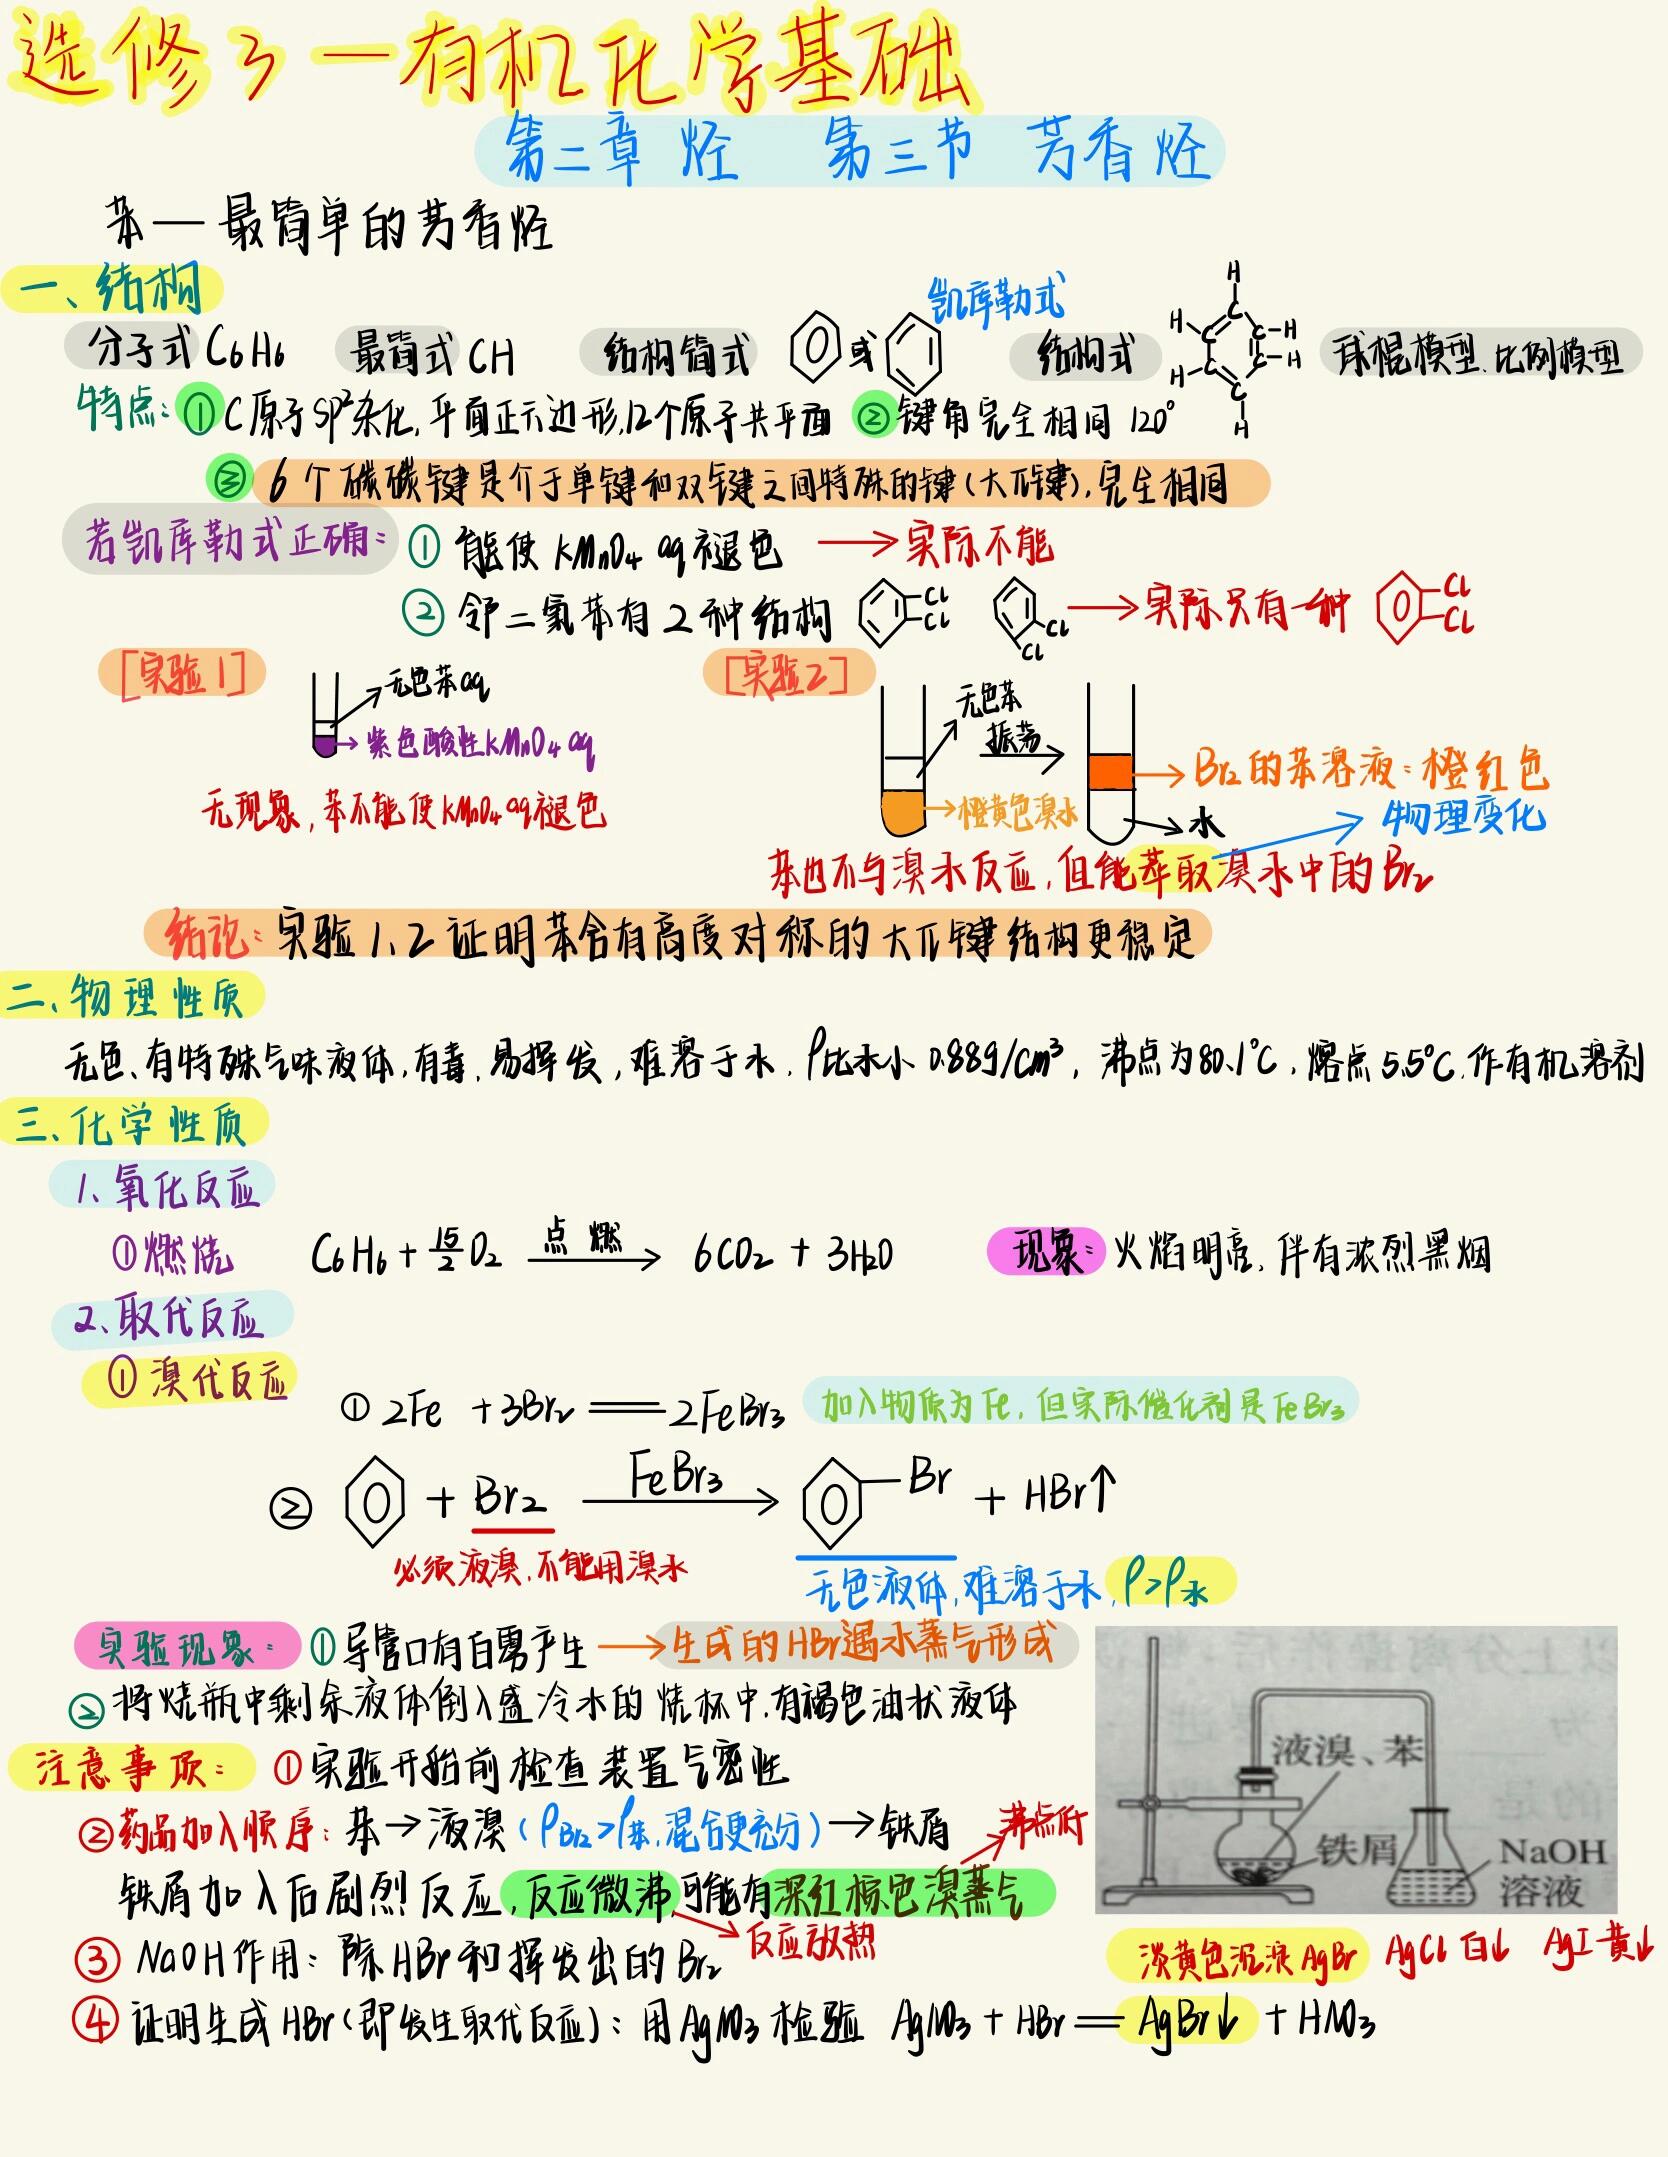 选修3—有机化学基础
第二章 烃 第三节 芳香烃
苯—最简单的芳香烃
一、结构
凯库勒式
分子式 C6H6 最简式 CH 结构简式 或 结构式 球棍模型、比例模型
H
H C H
C C
C C
H C H
H
特点：①C原子sp²杂化，平面正六边形，12个原子共平面 ②键角完全相同 120°
③ 6个碳碳键是介于单键和双键之间特殊的键（大π键），完全相同
若凯库勒式正确：① 能使KMnO4 aq褪色 → 实际不能
② 邻二氯苯有2种结构 Cl Cl Cl Cl → 实际只有一种 Cl Cl
[实验1] 无色苯aq
紫色酸性KMnO4 aq
无现象，苯不能使KMnO4 aq褪色
[实验2] 无色苯
振荡
橙黄色溴水
Br2的苯溶液：橙红色
水
物理变化
苯也不与溴水反应，但能萃取溴水中的Br2
结论：实验1、2证明苯含有高度对称的大π键结构更稳定
二、物理性质
无色、有特殊气味液体，有毒，易挥发，难溶于水，ρ比水小 0.88g/cm³，沸点为80.1℃，熔点5.5℃，作有机溶剂
三、化学性质
1、氧化反应
①燃烧 C6H6 + 15/2 O2 点燃→ 6CO2 + 3H2O 现象：火焰明亮，伴有浓烈黑烟
2、取代反应
①溴代反应
① 2Fe + 3Br2 ══ 2FeBr3 加入物质为Fe，但实际催化剂是FeBr3
② + Br2 FeBr3→ Br + HBr↑
必须液溴，不能用溴水
无色液体，难溶于水，ρ>ρ水
实验现象：①导管口有白雾产生 → 生成的HBr遇水蒸气形成
②将烧瓶中剩余液体倒入盛冷水的烧杯中，有褐色油状液体
注意事项：①实验开始前检查装置气密性
②药品加入顺序：苯→液溴（ρBr2>ρ苯，混合更充分）→铁屑
沸点低
铁屑加入后剧烈反应，反应微沸，可能有深红棕色溴蒸气
反应放热
③ NaOH作用：除HBr和挥发出的Br2
液溴、苯
铁屑
NaOH
溶液
淡黄色沉淀AgBr AgCl白↓ AgI黄↓
④ 证明生成HBr（即发生取代反应）：用AgNO3检验 AgNO3 + HBr ══ AgBr↓ + HNO3